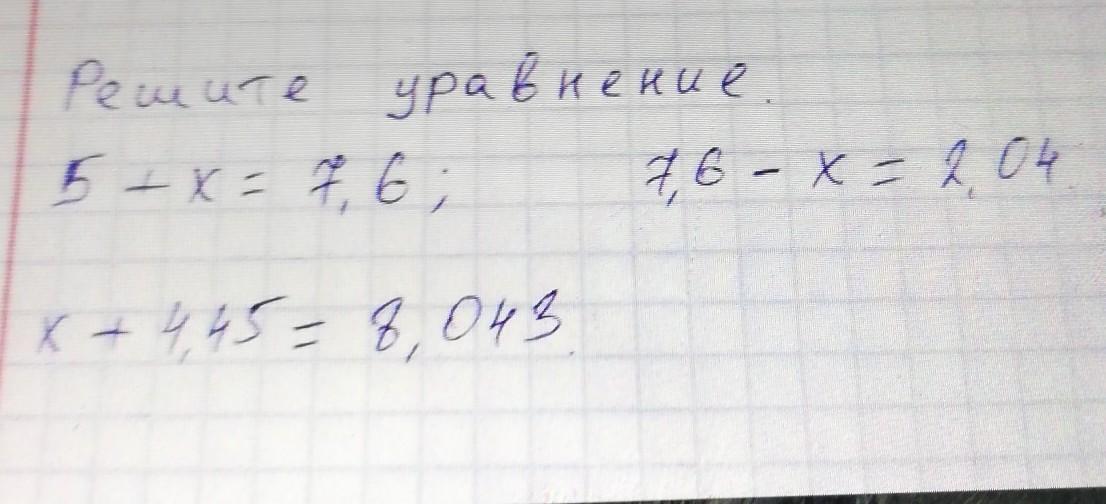 Решите уравнение.
5 + x = 7,6; 7,6 - x = 2,04.
x + 4,45 = 8,043.